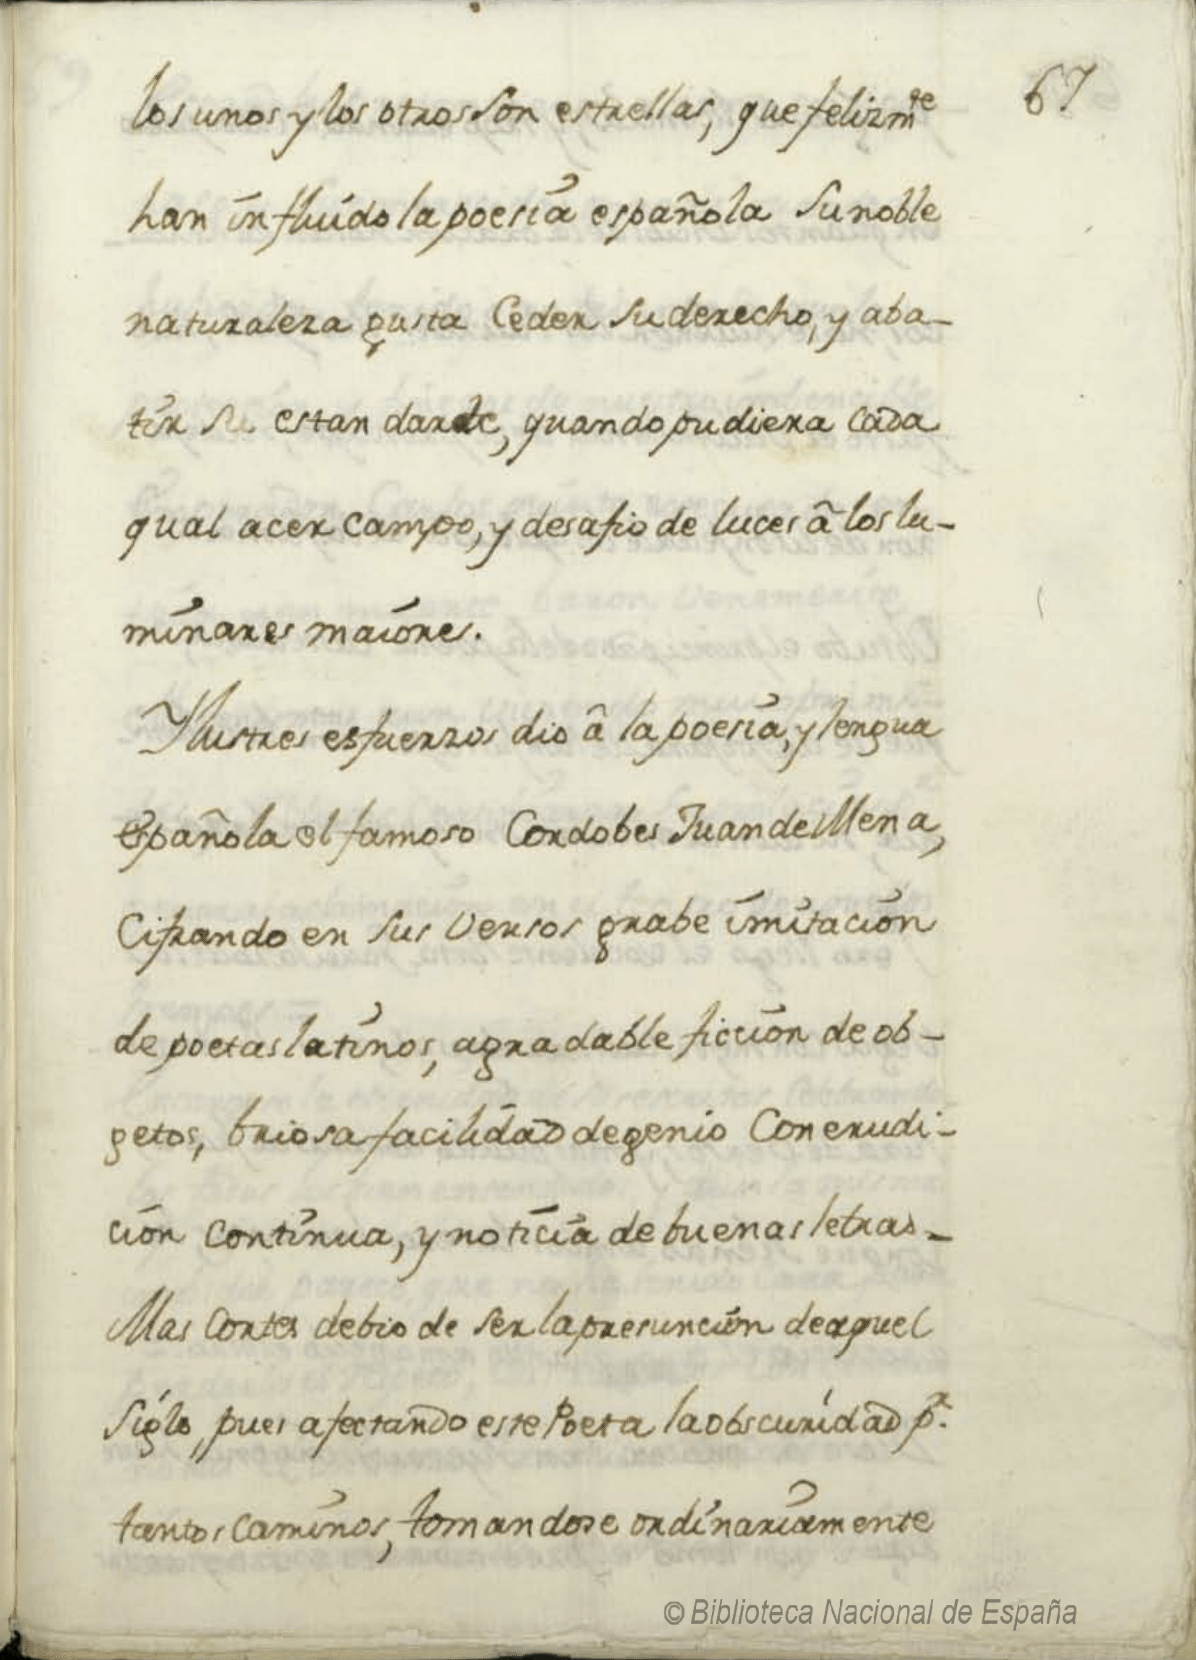 67
los unos y los otros son estrellas, que felizmte
han influido la poesia española su noble
naturaleza gusta Ceder su derecho, y aba-
tir su estandarte, quando pudiera Cada
qual acer Campo, y desafio de luces â los lu-
minares maiores.
Ylustres esfuerzos dio â la poesia, y lengua
española el famoso Cordobes Juan de Mena,
Cifrando en sus Versos grabe imitacion
de poetas latinos, agradable ficcion de ob-
getos, briosa facilidad de genio Con erudi-
cion Continua, y noticia de buenas letras-
Mas Cortes debio de ser la presuncion de aquel
Siglo, pues afectando este Poeta la obscuridad pr.
tantos Caminos, tomandose ordinariamente
© Biblioteca Nacional de España